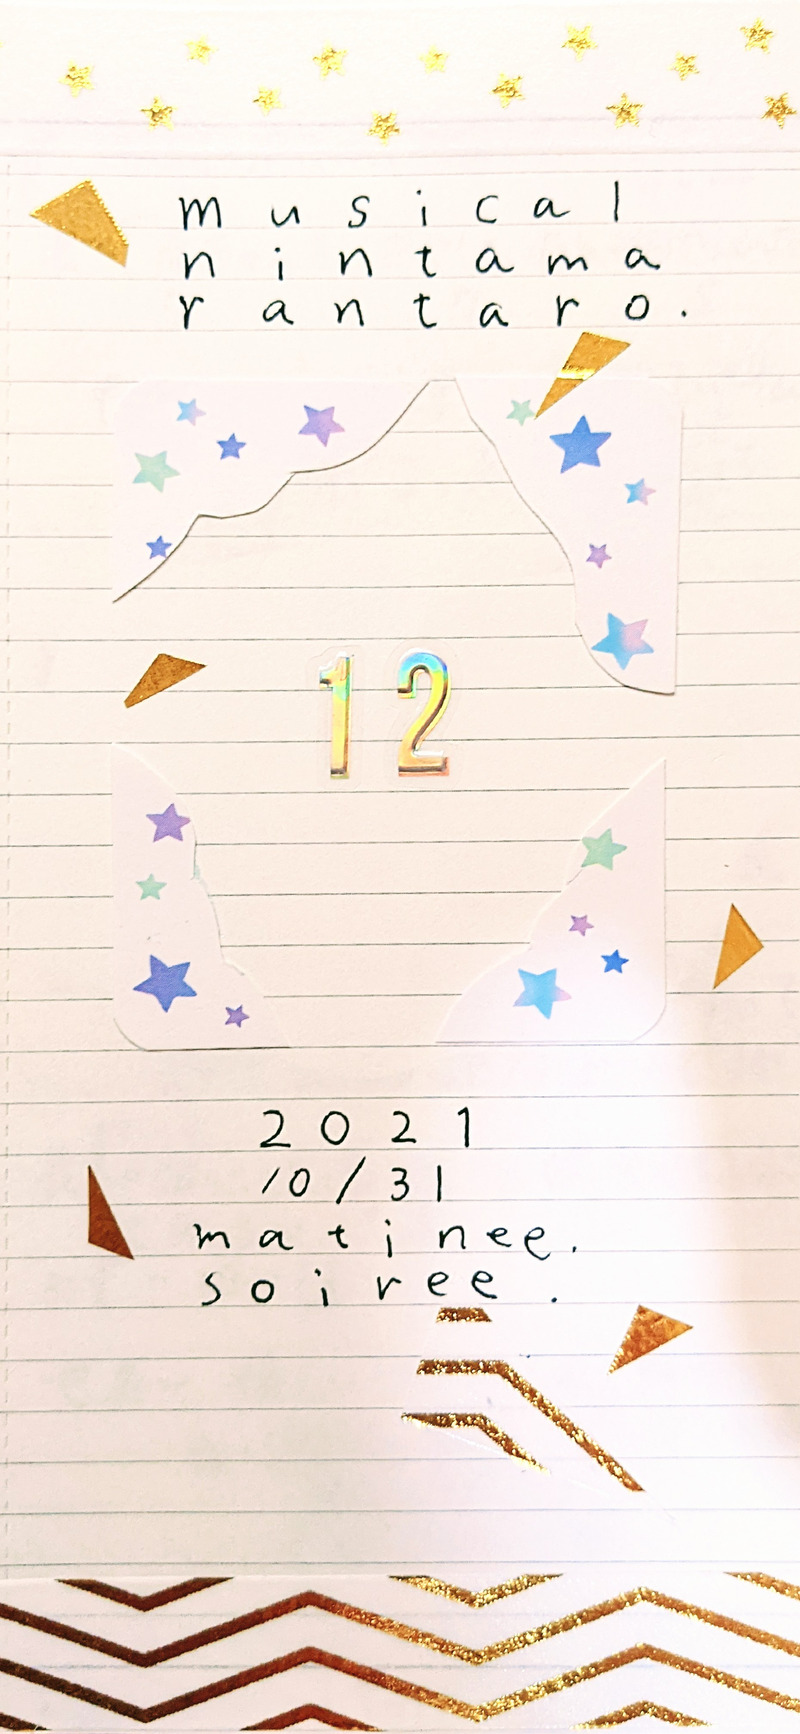 musical
nintama
rantaro.
12
2021
10/31
matinee.
soiree.